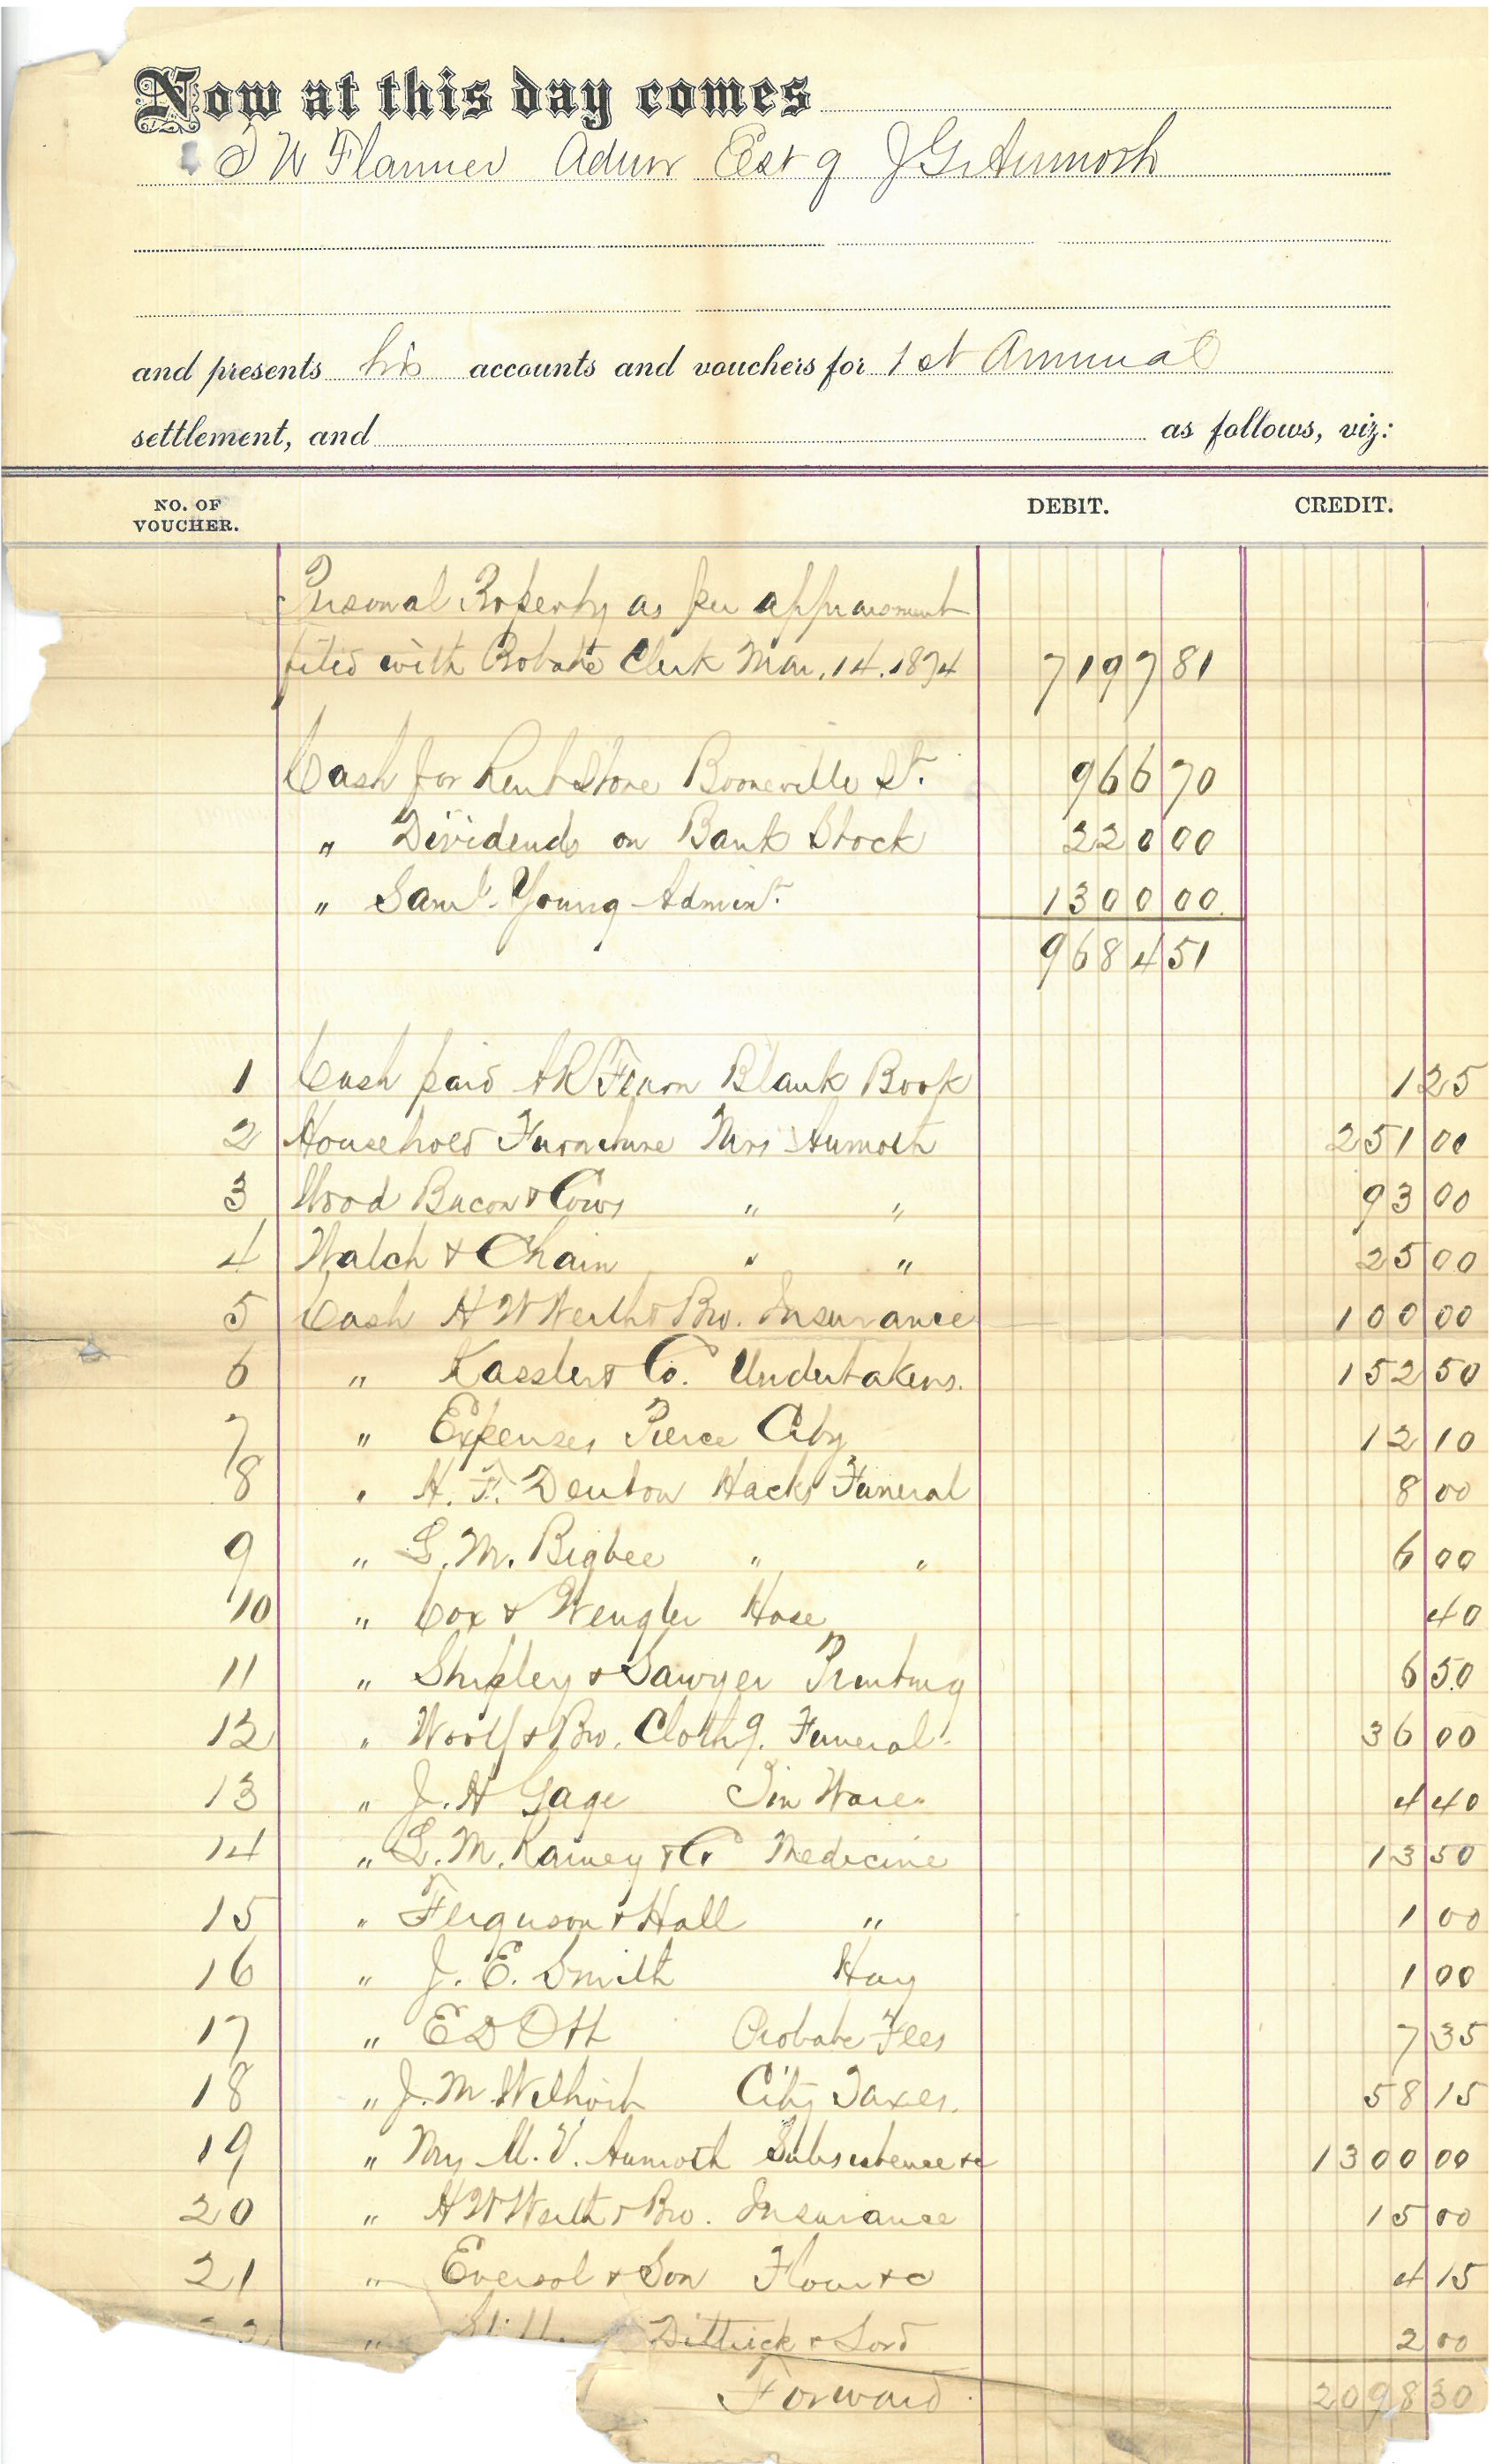 Now at this day comes
T W Flanner Admr Est of J G
and presents his accounts and vouchers for 1st Annual
settlement, and as follows, viz:
NO. OF VOUCHER. DEBIT. CREDIT.
Personal Property as per appraisment
filed with Probate Clerk Mar. 14. 1874 7197 81
Cash for Rent Store Booneville St. 966 70
" Dividends on Bank Stock 220 00
" Saml. Young Adminr. 1300 00
9684 51
1 Cash paid Blank Book 1 25
2 Household Furniture Mrs 251 00
3 Wood Bacon & Cows " " 93 00
4 Watch & Chain " " 25 00
5 Cash H W Werth & Bro. Insurance 100 00
6 " Kassler & Co. Undertakers. 152 50
7 " Expenses Pierce City 12 10
8 " H. F. Denton Hacks Funeral 8 00
9 " L. M. Bigbee " " 6 00
10 " Cox & Wengler Hose 40
11 " Shipley & Sawyer Printing 6 50
12 " Woolf & Bro. Clothg. Funeral. 36 00
13 " J. H Gage Tin Ware. 4 40
14 " L. M. Rainey & Co Medicine 13 50
15 " Ferguson & Hall " 1 00
16 " J. E. Smith Hay 1 00
17 " E D Ott Probate Fees 7 35
18 " J. M. Wilhoit City Taxes. 58 15
19 " Mrs M. V. Subsistence &c 1300 00
20 " H W Werth & Bro. Insurance 15 00
21 " Eversol & Son Flour &c 4 15
" Dittrick & Lord 2 00
Forward. 2098 30